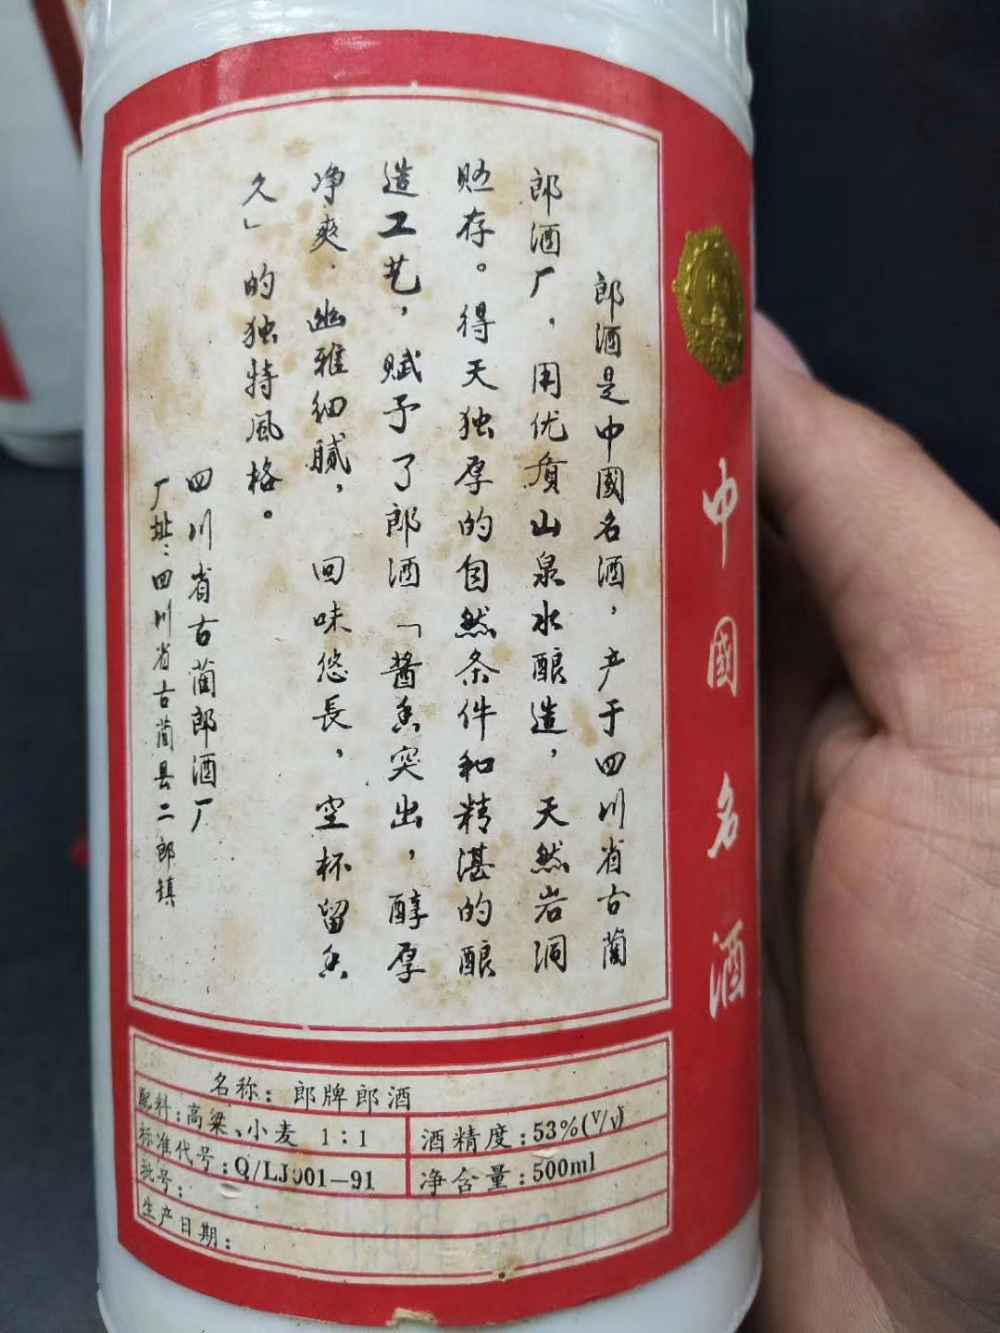 郎酒是中國名酒，产于四川省古蔺
郎酒厂，用优质山泉水酿造，天然岩洞
贮存。得天独厚的自然条件和精湛的酿
造工艺，赋予了郎酒「酱香突出，醇厚
净爽．幽雅细腻，回味悠長，空杯留香
久」的独特風格。
四川省古蔺郎酒厂
厂址：四川省古蔺县二郎镇
中國名酒
名称：郎牌郎酒
配料：高粱、小麦 1：1
酒精度：53%(V/V)
标准代号：Q/LJ001—91
净含量：500ml
批号：
生产日期：